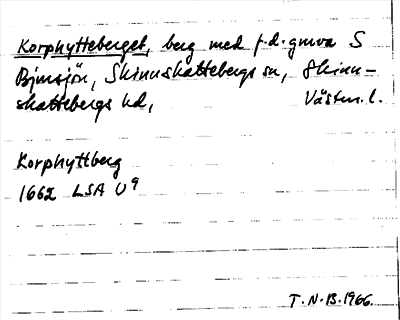 Korphytteberget, berg med f.d. gruva S
Bjursjön, Skinnskattebergs sn, Skinn-
skattebergs hd, Västm. l.
Korphyttberg
1662 LSA U9
T.N-B.1966.